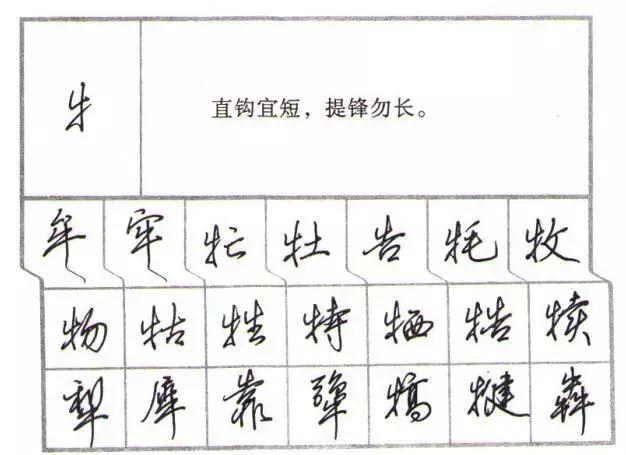 牛 直钩宜短，提锋勿长。
牟 牢 牤 牡 告 牦 牧
物 牯 牲 特 牺 牿 犊
犁 犀 靠 犟 犒 犍 犇